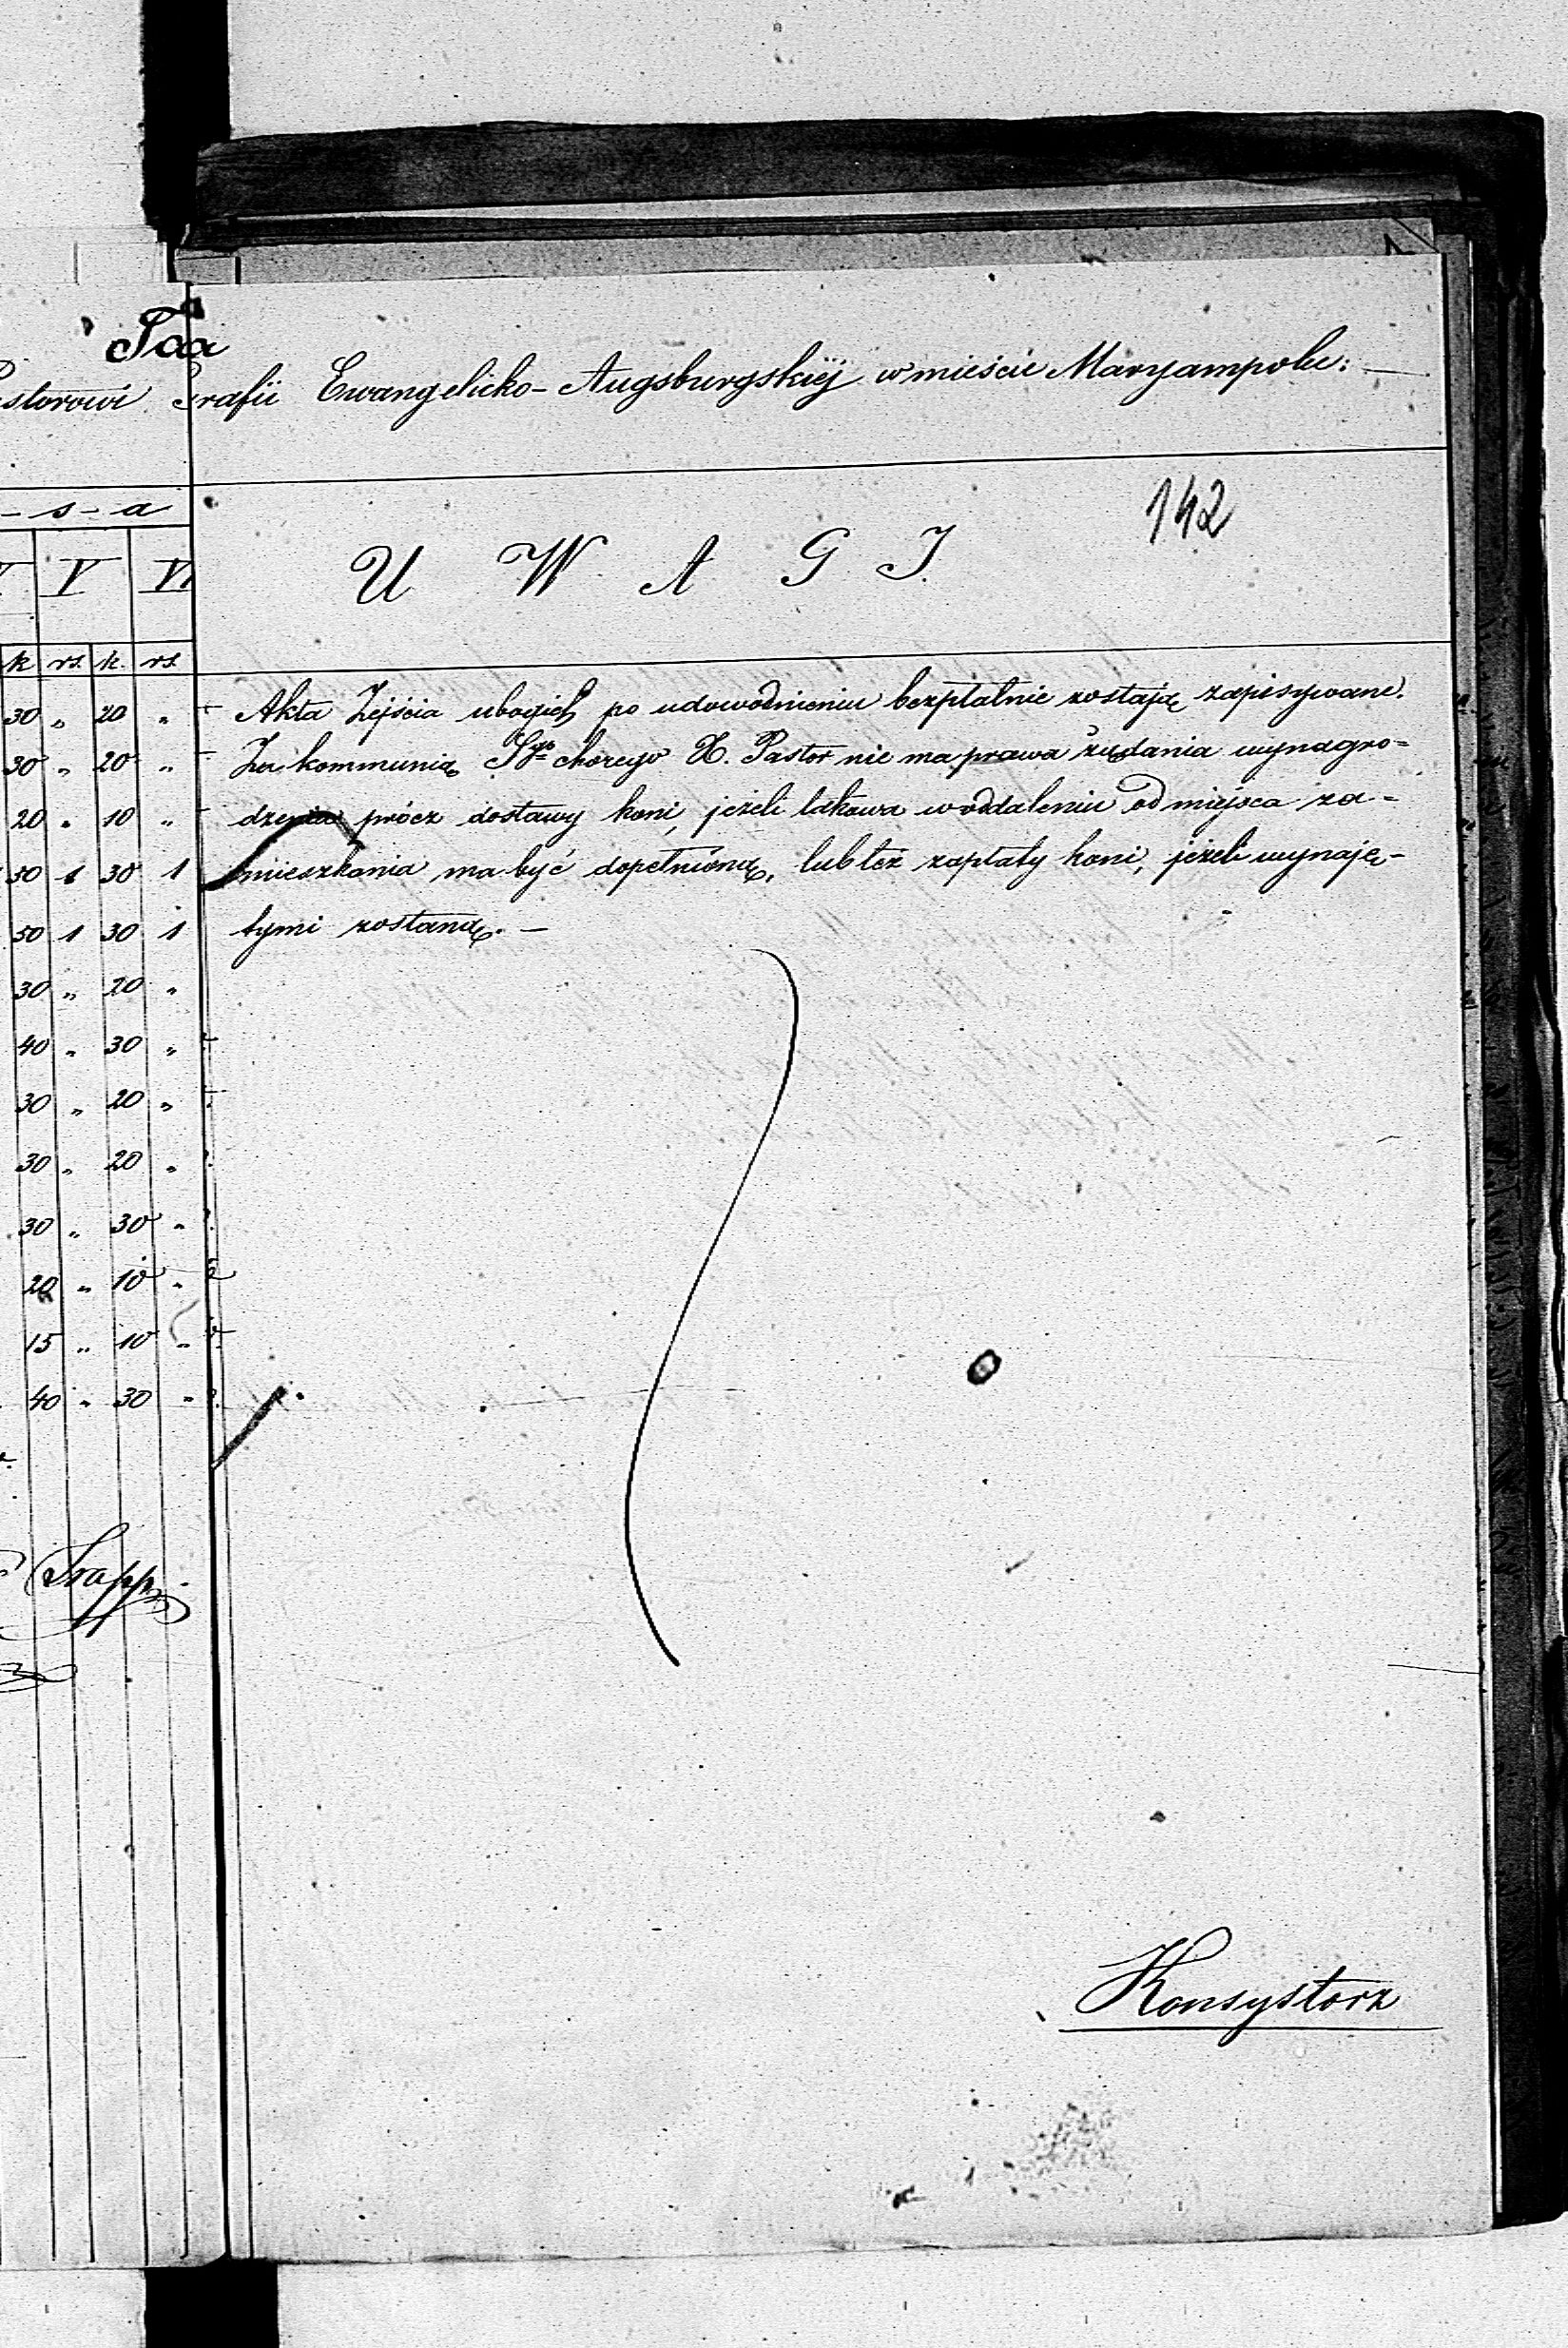 Taa
storowi rafii Ewangelicko-Augsburgskiéj w mieście Maryampolu: —
- s - a
142
U W A G I.
V VI
k rs. k. rs.
Akta Zejścia ubogich po udowodnieniu bezpłatnie zostają zapisywane.
Za kommunią Sgo chorego X. Pastor nie ma prawa żądania wynagro=
dzenia prócz dostawy koni, jeżeli takowa w oddaleniu od miejsca za=
mieszkania ma być dopełnioną, lub też zapłaty koni, jeżeli wynaję=
tymi zostaną. —
30 „ 20 „
30 „ 20 „
20 „ 10 „
30 1 30 1
50 1 30 1
30 „ 20 „
40 „ 30 „
30 „ 20 „
30 „ 20 „
30 „ 30 „
20 „ 10 „
15 „ 10 „
40 „ 30 „
Trapp
Konsystorz